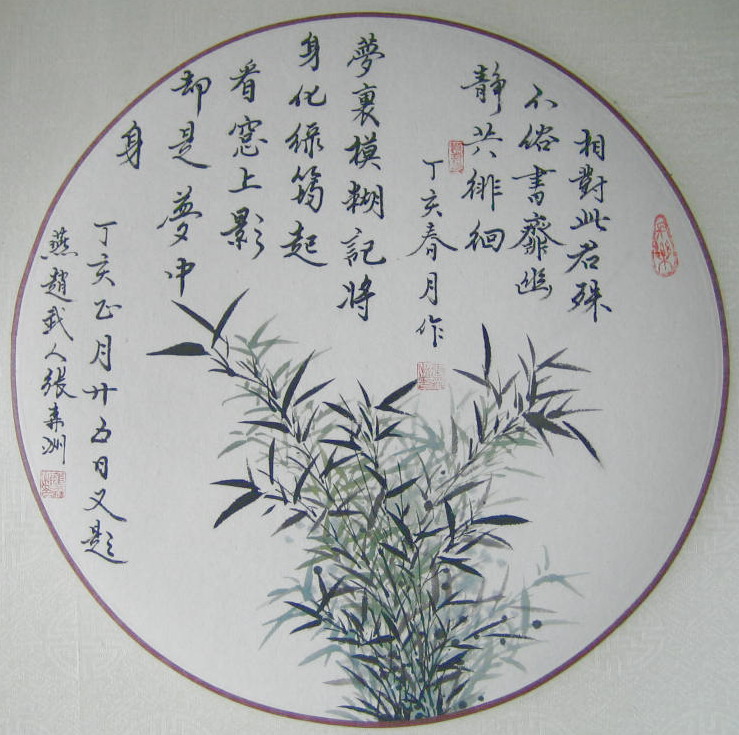 相對此君殊
不俗書齋幽
靜共徘徊
丁亥春月作
夢裏模糊記將
身化綠筠起
看窓上影
却是夢中
身
丁亥正月廿五日又題
燕趙武人張森洲